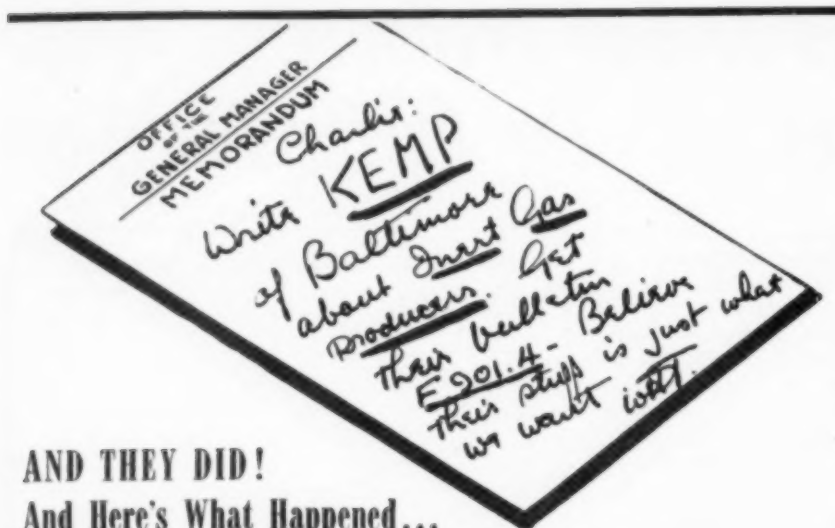 OFFICE
OF THE
GENERAL MANAGER
MEMORANDUM
Charlie:
Write KEMP
of Baltimore
about Inert Gas
Producers. Get
their bulletin
E 201.4 - Believe
their stuff is just what
we want
AND THEY DID!
And Here's What Happened...